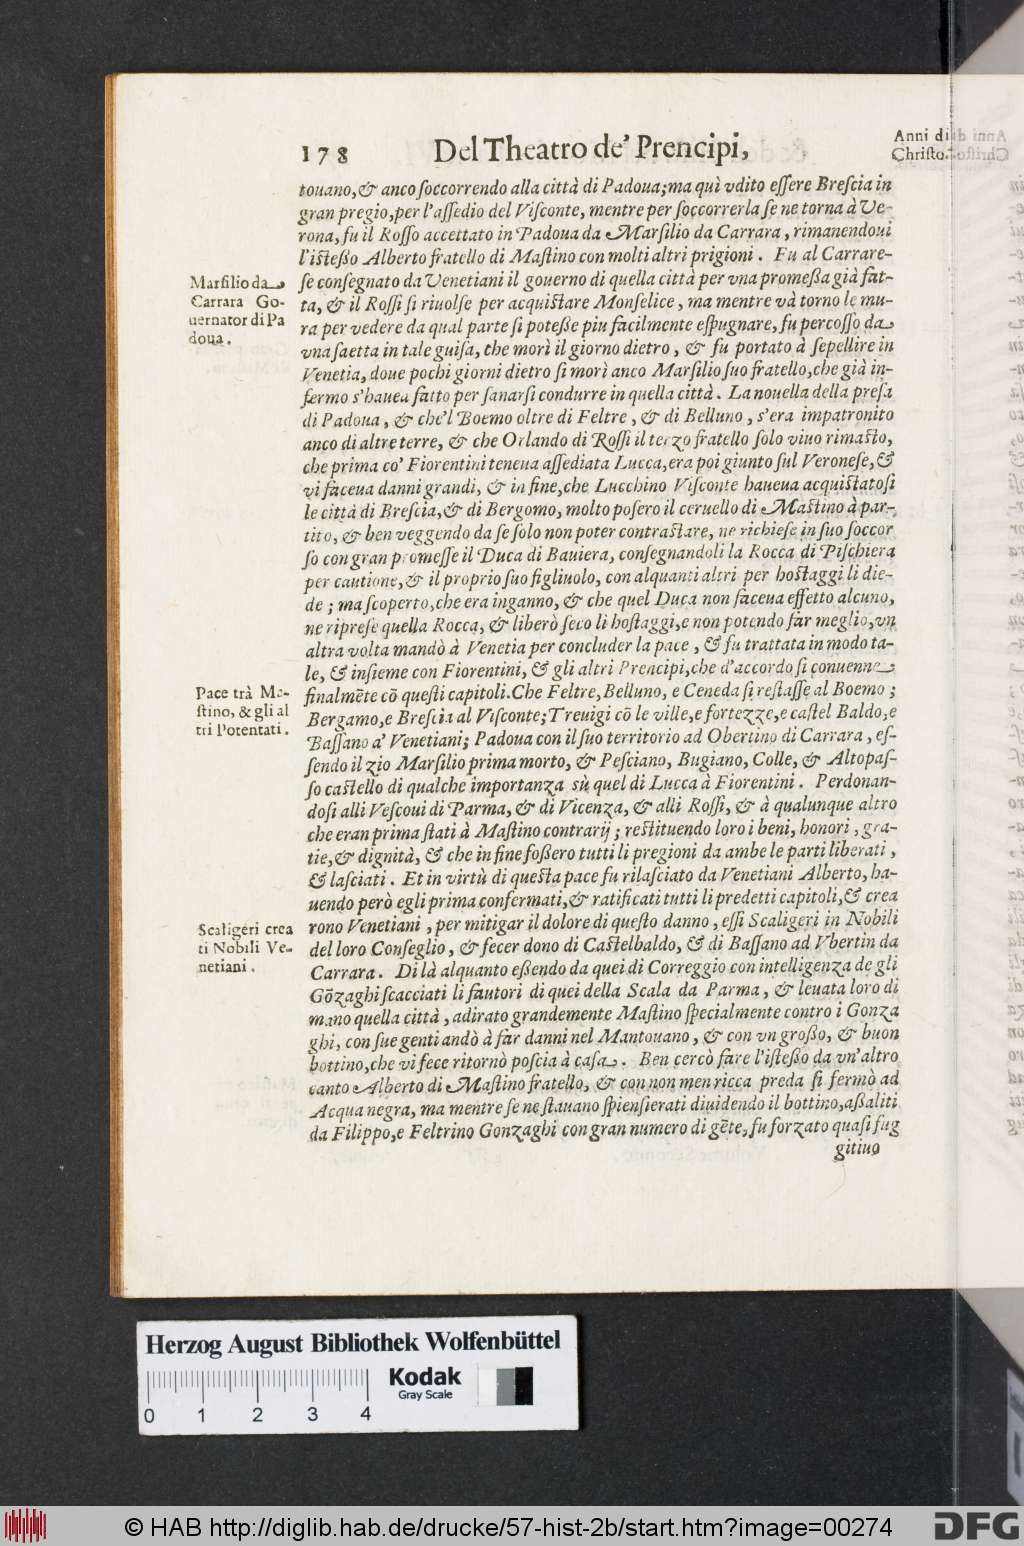 178 Del Theatro de' Prencipi,
Anni di
Christo.
touano,& anco ſoccorrendo alla città di Padoua;ma quì vdito eſſere Breſcia in
gran pregio,per l'aſſedio del Viſconte, mentre per ſoccorrerla ſe ne torna à Ue-
rona, fu il Roſſo accettato in Padoua da Marſilio da Carrara, rimanendoui
l'iſteßo Alberto fratello di Maſtino con molti altri prigioni. Fu al Carrare-
Marſilio da
Carrara Go-
uernator di Pa
doua.
ſe conſegnato da Uenetiani il gouerno di quella città per vna promeßa già fat-
ta, & il Roſſi ſi riuolſe per acquiſtare Monſelice, ma mentre và torno le mu-
ra per vedere da qual parte ſi poteße piu facilmente eſpugnare, fu percoſſo da
vna ſaetta in tale guiſa, che morì il giorno dietro, & fu portato à ſepellire in
Venetia, doue pochi giorni dietro ſi morì anco Marſilio ſuo fratello,che già in-
fermo s'hauea fatto per ſanarſi condurre in quella città. La nouella della preſa
di Padoua, & che'l Boemo oltre di Feltre, & di Belluno, s'era impatronito
anco di altre terre, & che Orlando di Roſſi il terzo fratello ſolo viuo rimaſto,
che prima co' Fiorentini teneua aſſediata Lucca,era poi giunto ſul Veroneſe, &
vi faceua danni grandi, & in fine,che Lucchino Viſconte haueua acquiſtatoſi
le città di Breſcia,& di Bergomo, molto poſero il ceruello di Maſtino à par-
tito, & ben veggendo da ſe ſolo non poter contraſtare, ne richieſe in ſuo ſoccor
ſo con gran promeſſe il Duca di Bauiera, conſegnandoli la Rocca di Piſchiera
per cautione,& il proprio ſuo figliuolo, con alquanti altri per hoſtaggi li die-
de; ma ſcoperto,che era inganno, & che quel Duca non faceua effetto alcuno,
ne ripreſe quella Rocca, & liberò ſeco li hoſtaggi,e non potendo far meglio,vn
altra volta mandò à Venetia per concluder la pace, & fu trattata in modo ta-
le, & inſieme con Fiorentini, & gli altri Prencipi,che d'accordo ſi conuenne
Pace trà Ma-
ſtino, & gli al
tri Potentati.
finalmēte cō queſti capitoli.Che Feltre,Belluno, e Ceneda ſi reſtaſſe al Boemo;
Bergamo,e Breſcia al Viſconte;Treuigi cō le ville,e fortezze,e caſtel Baldo,e
Baſſano a' Venetiani; Padoua con il ſuo territorio ad Obertino di Carrara, eſ-
ſendo il zio Marſilio prima morto, & Peſciano, Bugiano, Colle, & Altopaſ-
ſo caſtello di qualche importanza sù quel di Lucca à Fiorentini. Perdonan-
doſi alli Veſcoui di Parma, & di Vicenza, & alli Roſſi, & à qualunque altro
che eran prima ſtati à Maſtino contrarij; reſtituendo loro i beni, honori, gra-
tie,& dignità, & che in fine foßero tutti li pregioni da ambe le parti liberati,
& laſciati. Et in virtù di queſta pace fu rilaſciato da Venetiani Alberto, ha-
uendo però egli prima confermati,& ratificati tutti li predetti capitoli,& crea
Scaligeri crea
ti Nobili Ve-
netiani.
rono Venetiani, per mitigar il dolore di queſto danno, eſſi Scaligeri in Nobili
del loro Conſeglio, & fecer dono di Caſtelbaldo, & di Baſſano ad Vbertin da
Carrara. Di là alquanto eßendo da quei di Correggio con intelligenza de gli
Gōzaghi ſcacciati li fautori di quei della Scala da Parma, & leuata loro di
mano quella città, adirato grandemente Maſtino ſpecialmente contro i Gonza
ghi, con ſue genti andò à far danni nel Mantouano, & con vn großo, & buon
bottino,che vi fece ritornò poſcia à caſa. Ben cercò fare l'iſteßo da vn'altro
canto Alberto di Maſtino fratello, & con non men ricca preda ſi fermò ad
Acqua negra, ma mentre ſe ne ſtauano ſpienſierati diuidendo il bottino,aßaliti
da Filippo,e Feltrino Gonzaghi con gran numero di gēte, fu forzato quaſi fug
gitiuo
Herzog August Bibliothek Wolfenbüttel
Kodak
Gray Scale
0 1 2 3 4
© HAB http://diglib.hab.de/drucke/57-hist-2b/start.htm?image=00274
DFG